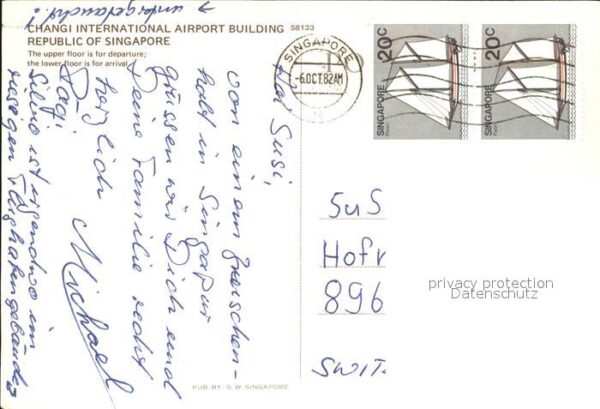 → untergetaucht!
CHANGI INTERNATIONAL AIRPORT BUILDING S8133
REPUBLIC OF SINGAPORE
The upper floor is for departure;
the lower floor is for arrival.
SINGAPORE
-6.OCT.82AM
20C
SINGAPORE
20C
SINGAPORE
Susi,
von einem Zwischen-
halt in Singapur
grüssen wir Dich und
Deine Familie recht
herzlich
Michael
Silvio ist irgendwo im
riesigen Flughafengebäude
SuS
Hofr
896
SWIT.
privacy protection
Datenschutz
PUB BY: S.W. SINGAPORE